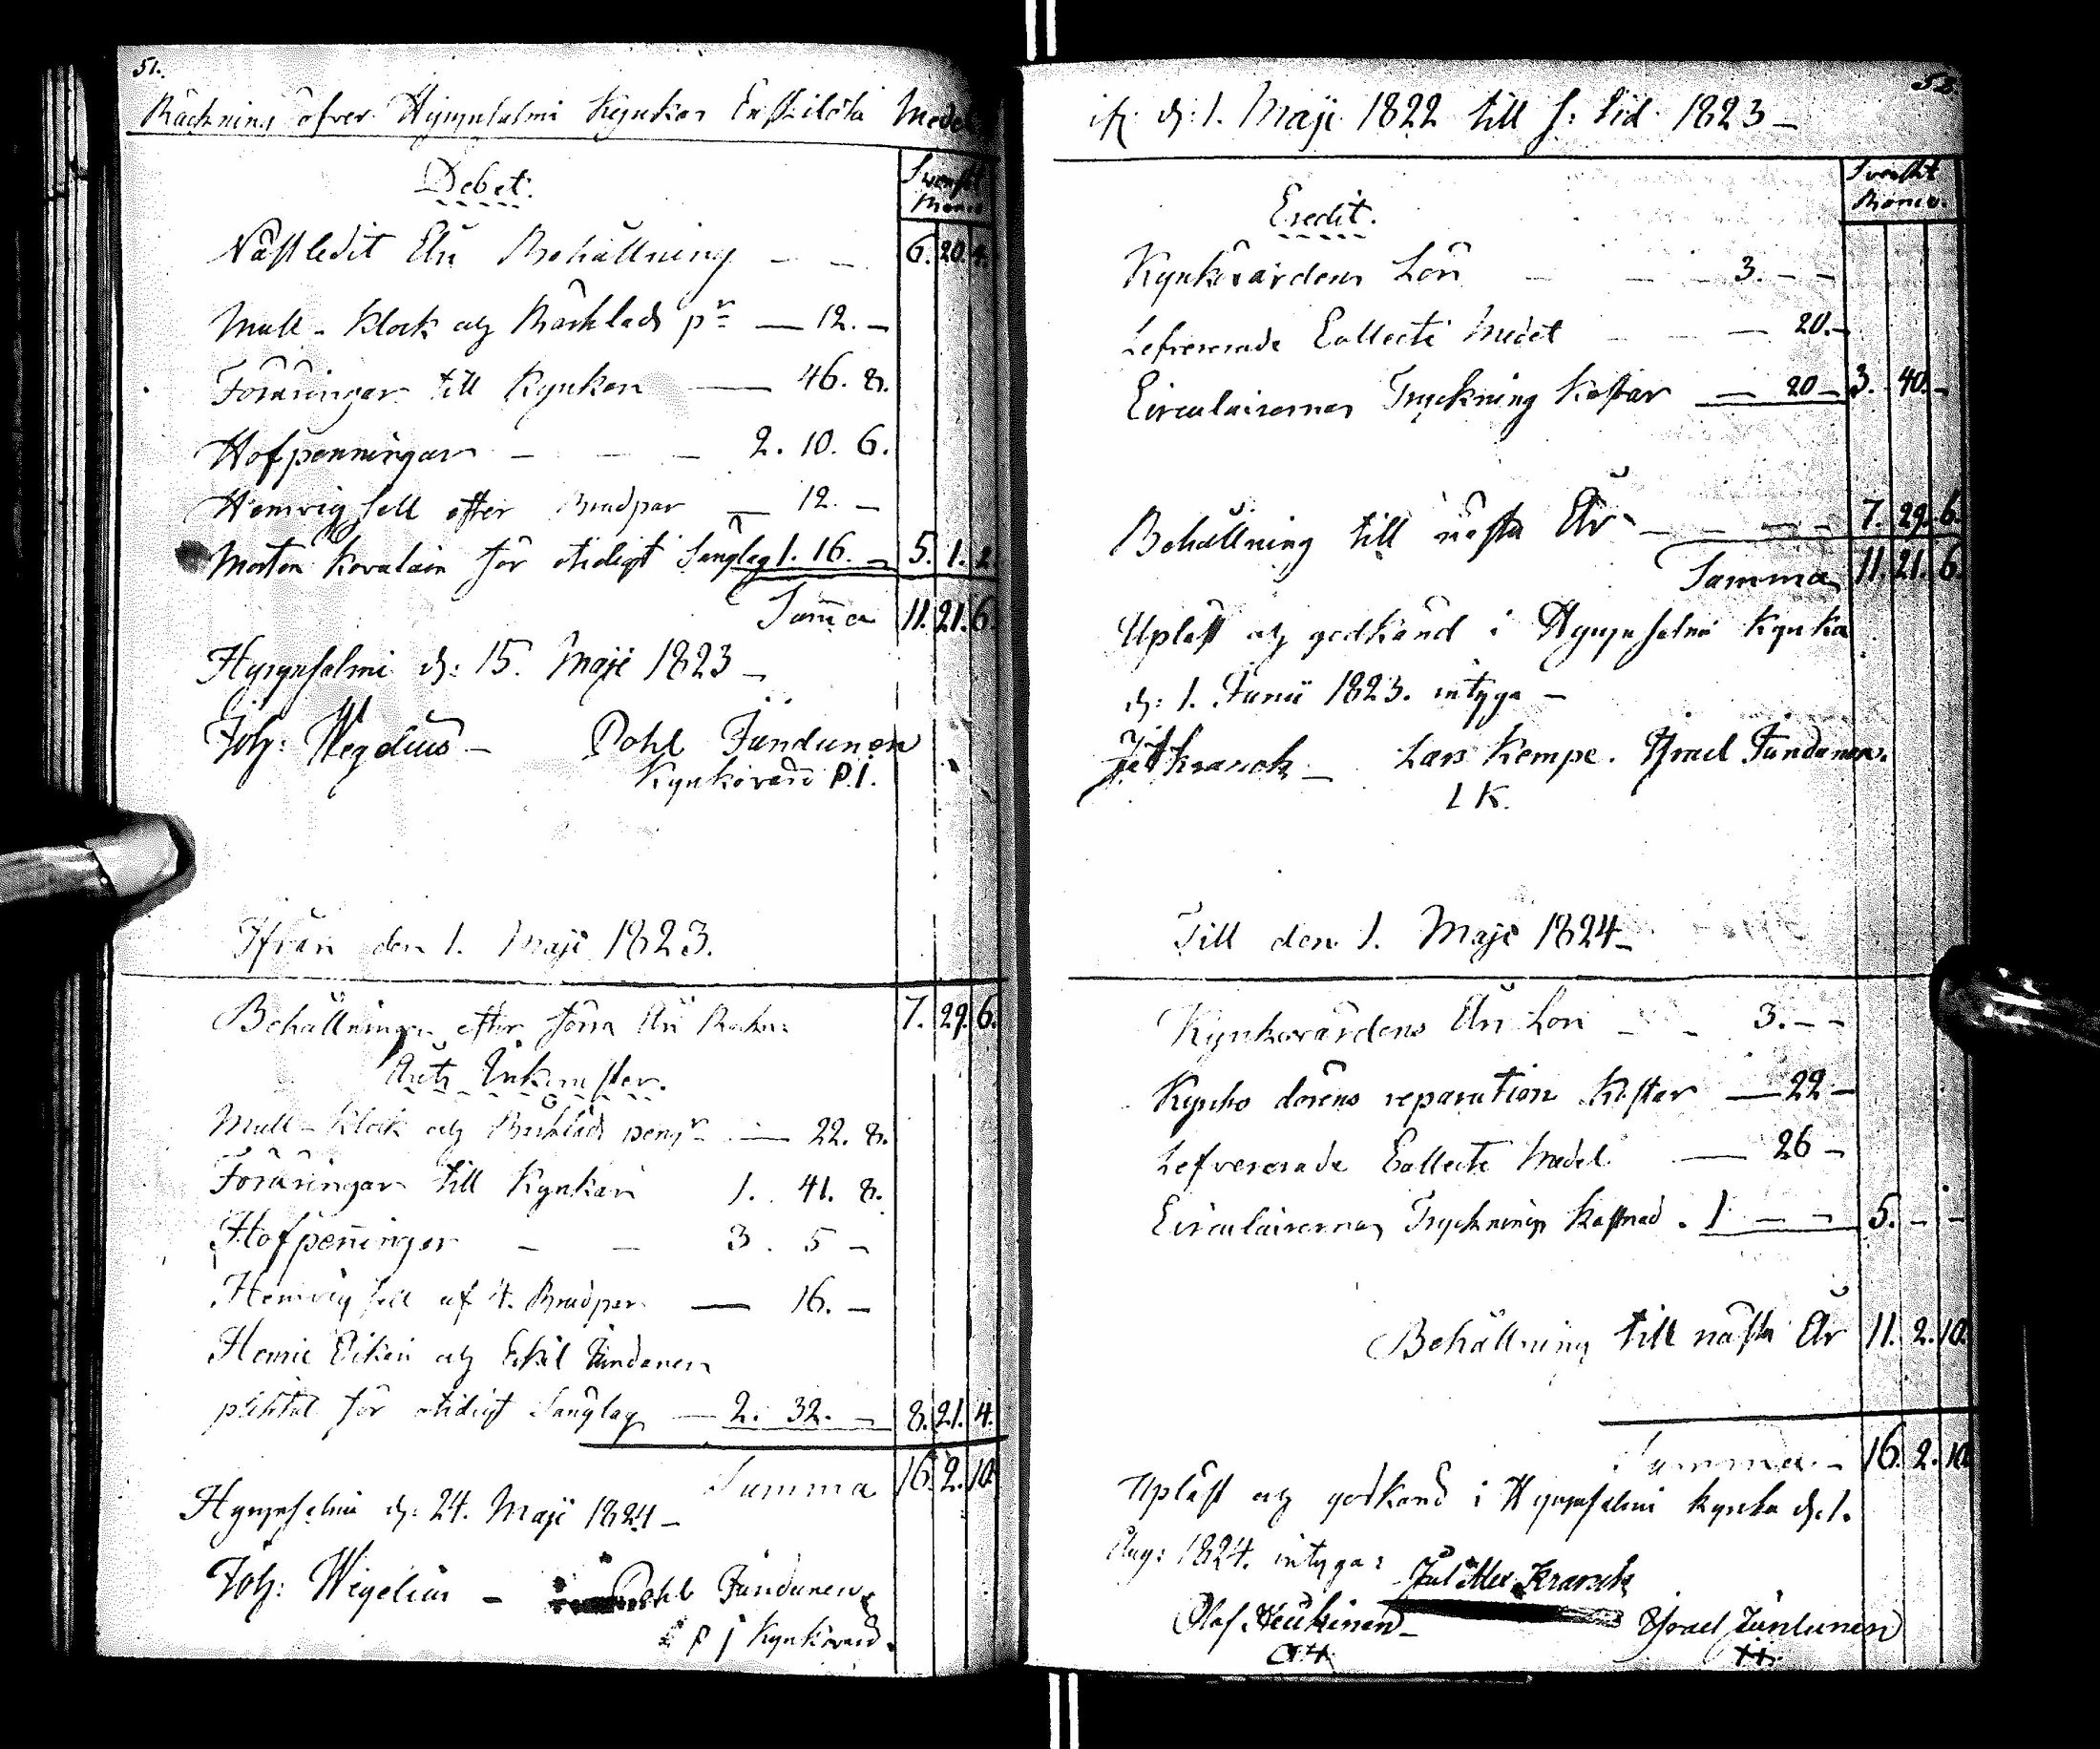 51.
Räckning öfver Hyrynsalmi Kyrckas Enskilda Medel
Debet.
Svenskt
Mone
Nästledit Års Behållning — — 6. 20. 4.
Mull - Klock och Bårklads pr — 12. —
Föräringar till Kyrkan — 46. 8.
Hofpenningar — — — 2. 10. 6.
Hemvigsell efter Brudpar — 12. —
Morten Kovalain för otidigt Sänglag 1. 16. — 5. 1. 2.
Summa 11. 21. 6.
Hyrynsalmi d: 15. Maji 1823 —
Joh: Wegelius — Pohl Jundunen
Kyrkovärd P.J.
Ifrån den 1. Maji 1823.
Behållningen efter förra Års Räkn: 7. 29. 6.
Årets Inkomster.
Mull - Klock och Bårklads pengr — 22. 8.
Föräringar till Kyrkan 1. 41. 8.
Hofpeninger — — 3. 5 —
Hemvigsell af 4. Brudpar — 16. —
Henric och Eskil Jundunen
pliktat för otidigt Sänglag — 2. 32. — 8. 21. 4.
Summa 16. 2. 10.
Hyrynsalmi d: 24. Maji 1824 —
Joh: Wegelius — Pohl Jundunen
P J Kyrkovärd.
52
ifr. d: 1. Maji 1822 till s: tid. 1823 —
Svenskt
Mone.
Credit.
Kyrkovärdens Lön — — — 3. — —
Lefvererade Collecte Medel — — — 20. —
Circulairernas Tryckning kostar — 20 — 3. 40. —
Behållning till nästa År — — — — 7. 29. 6.
Summa 11. 21. 6.
Upläst och godkänd i Hyrynsalmi Kyrka
d: 1. Junii 1823. intyga —
Kranck — Lars Kempe. Israel Jundunen.
L K.
Till den 1. Maji 1824 —
Kyrkovärdens Års Lön — — 3. — —
Kyrko dörens reparation kostar — 22 —
Lefvererade Collecte Medel — 26 —
Circulairernas Trycknings kostnad . 1 — — 5. — —
Behållning till nästa År 11. 2. 10.
Summa. — 16. 2. 10.
Upläst och godkänd i Hyrynsalmi Kyrka d. 1.
Aug: 1824. intyga: Kranck
Olof Keukinen — Israel Jundunen